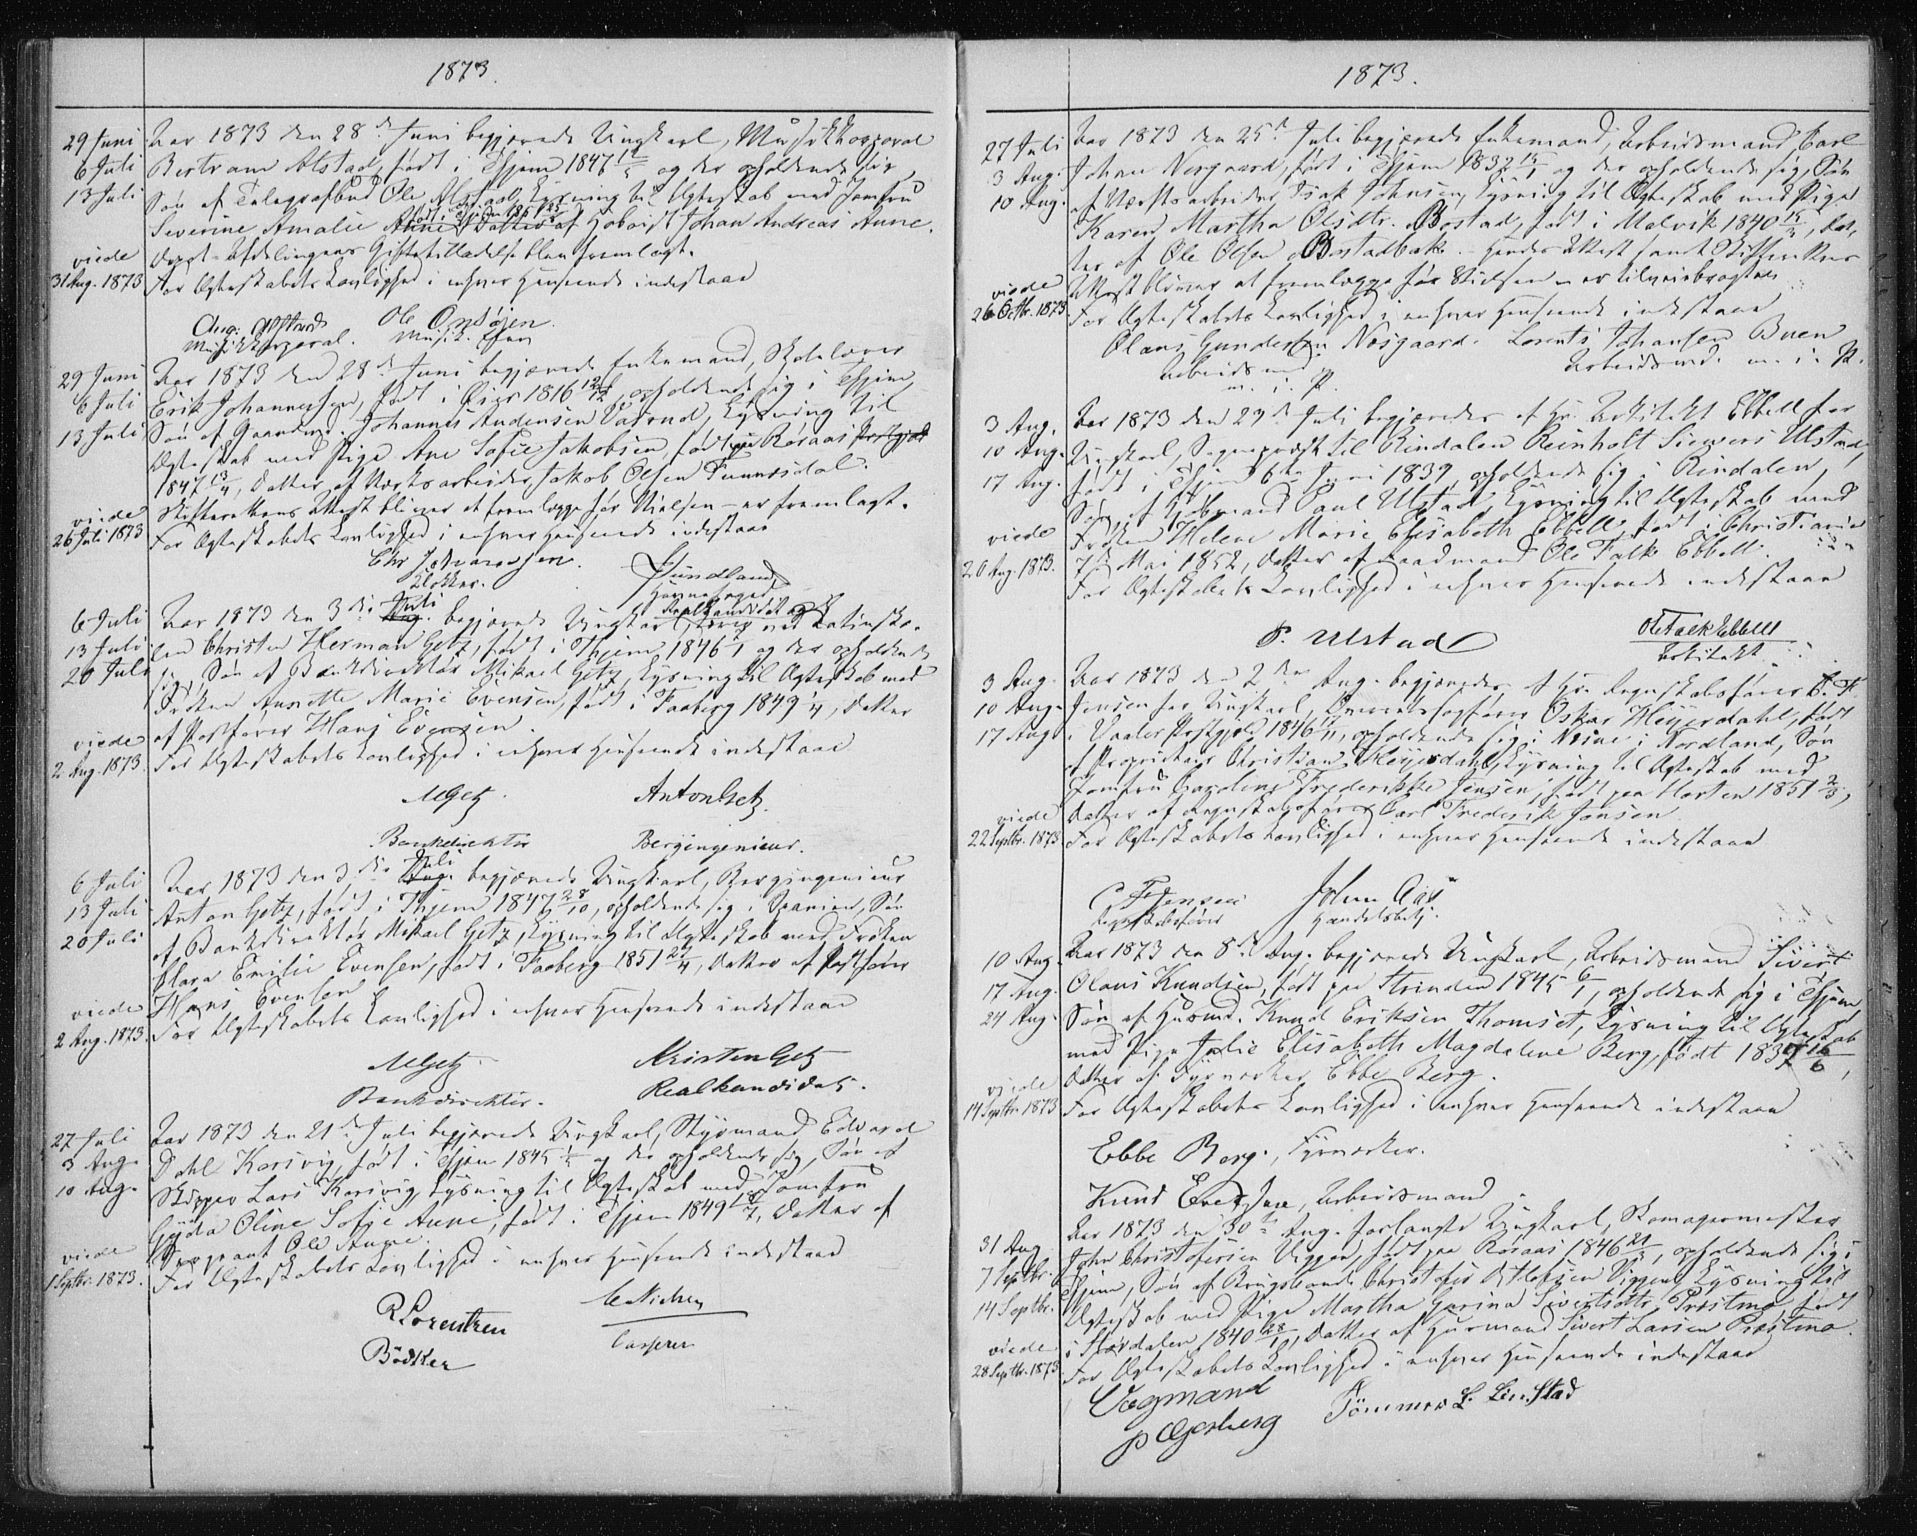 1873.
29 Juni
6 Juli
13 Juli
viede
31 Aug. 1873
Aar 1873 den 28de Juni begjærede Ungkarl, Musikkorporal
Bertram Alstad, født i Thjem 1847 og der opholdende sig,
Søn af Telegrafbud Ole Alstad, Lysning til Ægteskab med Jomfru
Severine Amalie Aune, Datter af Hoboist Johan Andreas Aune.
Afdelingens Giftetilladelse blev fremlagt.
For Ægteskabets Lovlighed i enhver Henseende indestaar
Alstad Ole
Musikkorporal. Musik
29 Juni
6 Juli
13 Juli
viede
26 Juli 1873
Aar 1873 den 28de Juni begjærede Enkemand, Skolelærer
Erik Johannessen, født i Øier 1816 12/12, opholdende sig i Thjem,
Søn af Gaardmd. Johannes Andersen Lysning til
Ægteskab med Pige Ane Sofie Jakobsen, født paa Røraas
1847 13/4, Datter af Værksarbeider Jakob Olsen Tunnesdal.
Skifterettens Attest bliver at fremlægge før Vielsen – er fremlagt.
For Ægteskabets Lovlighed i enhver Henseende indestaar
Chr Johannesen. Sundland
Klokker. Havnefoged
6 Juli
13 Juli
20 Juli
viede
2 Aug. 1873.
Aar 1873 den 3die Juli begjærede Ungkarl, Realkandidat ved Latinsko-
len Christen Herman Getz, født i Thjem 1846 og der opholdende
sig, Søn af Bankdirektør Mikael Getz, Lysning til Ægteskab med
Frøken Annette Marie Evensen, født i Faaberg 1849 1/4, Datter
af Postfører Hans Evensen.
For Ægteskabets Lovlighed i enhver Henseende indestaar
MGetz. AntonGetz.
Bankdirektør Bergingeniør.
6 Juli
13 Juli
20 Juli
viede
2 Aug. 1873.
Aar 1873 den 3die Juli begjærede Ungkarl, Bergingeniør
Anton Getz, født i Thjem 1847 28/10, opholdende sig i Spanien, Søn
af Bankdirektør Mikael Getz, Lysning til Ægteskab med Frøken
Clara Emilie Evensen, født i Faaberg 1851 27/4, Datter af Postfører
Hans Evensen
For Ægteskabets Lovlighed i enhver Henseende indestaar
MGetz. Kristen Getz
Bankdirektør. Realkandidat.
27 Juli
3 Aug.
10 Aug.
viede
1 Septbr. 1873.
Aar 1873 den 21de Juli begjærede Ungkarl, Styrmand Edvard
Dahl Korsvig, født i Thjem 1845 og der opholdende sig, Søn af
Skipper Lars Korsvig, Lysning til Ægteskab med Jomfru
Gyda Oline Sofie Aune, født i Thjem 1849, Datter af
Sergeant Ole Aune.
For Ægteskabets Lovlighed i enhver Henseende indestaar
R Lorentzen C Nielsen
Bødker Casserer
1873.
27 Juli
3 Aug.
10 Aug.
viede
26 Octbr. 1873.
Aar 1873 den 25de Juli begjærede Enkemand, Arbeidsmand Carl
Johan Nesgaard, født i Thjem 1832 og der opholdende sig, Søn
af Værftsarbeider Isak Johnsen, Lysning til Ægteskab med Pige
Karen Martha Olsdtr. Bostad, født i Malvik 1840, Dat-
ter af Ole Olsen Bostadbak. Hendes Attest samt Skifterettens
Attest bliver at fremlægge før Vielsen – er tilveiebragte.
For Ægteskabets Lovlighed i enhver Henseende indestaar
Olaus Gundersen Nesgaard. Lorents Johansen Buen
Arbeidsmd. Arbeidsmd. m. i. P.
m. i. P.
3 Aug.
10 Aug.
17 Aug.
viede
20 Aug. 1873.
Aar 1873 den 29de Juli begjæredes af Hr. Arkitekt Ebbell for
Ungkarl, Sognepræst til Rindalen Reinholt Siewers Ulstad,
født i Thjem 6te Juni 1839, opholdende sig i Rindalen,
Søn af Kjøbmand Paul Ulstad, Lysning til Ægteskab med
Frøken Helene Marie Elisabeth Ebbell, født i Christiania
7de Mai 1852, Datter af Raadmand Ole Falk Ebbell.
For Ægteskabets Lovlighed i enhver Henseende indestaar
P. Ulstad Ole Falk Ebbell
Arkitekt.
3 Aug.
10 Aug.
17 Aug.
viede
22 Septbr. 1873
Aar 1873 den 2den Aug. begjæredes af Hr. Regnskabsfører C. F.
Jensen for Ungkarl, Oskar Heyerdahl, født
i Vaaler Prstgjeld 1846, opholdende sig i Nesne i Nordland, Søn
af Proprietær Christian Heyerdahl, Lysning til Ægteskab med
Jomfru Caroline Frederikke Jensen, født paa Horten 1851 2/3,
Datter af Regnskabsfører Carl Frederik Jensen.
For Ægteskabets Lovlighed i enhver Henseende indestaar
C F Jensen Johan Aas
Regnskabsfører Handelsbetj.
10 Aug.
17 Aug.
24 Aug.
viede
14 Septbr. 1873
Aar 1873 den 8de Aug. begjærede Ungkarl, Arbeidsmand Sivert
Olaus Knudsen, født paa Strinden 1845 6/1, opholdende sig i Thjem,
Søn af Husmd. Knud Eriksen Thomset, Lysning til Ægteskab
med Pige Julie Elisabeth Magdalene Berg, født 1837 16/6,
Datter af Fyrverker Ebbe Berg.
For Ægteskabets Lovlighed i enhver Henseende indestaar
Ebbe Berg., Fyrverker.
Knud Eriksen, Arbeidsmand
31 Aug.
7 Septbr.
14 Septbr.
viede
28 Septbr. 1873
Aar 1873 den 30te Aug. forlangte Ungkarl, Skomagermester
John Christofersen Viggen, født paa Røraas 1846, opholdende sig i
Thjem, Søn af Christofer Viggen, Lysning til
Ægteskab med Pige Martha Gurina Sivertsdtr. Præstmo, født
i Stordalen 1840 28/10, Datter af Husmand Sivert Larsen Præstmo.
For Ægteskabets Lovlighed i enhver Henseende indestaar
Vegmand Tømmer L. Linstad